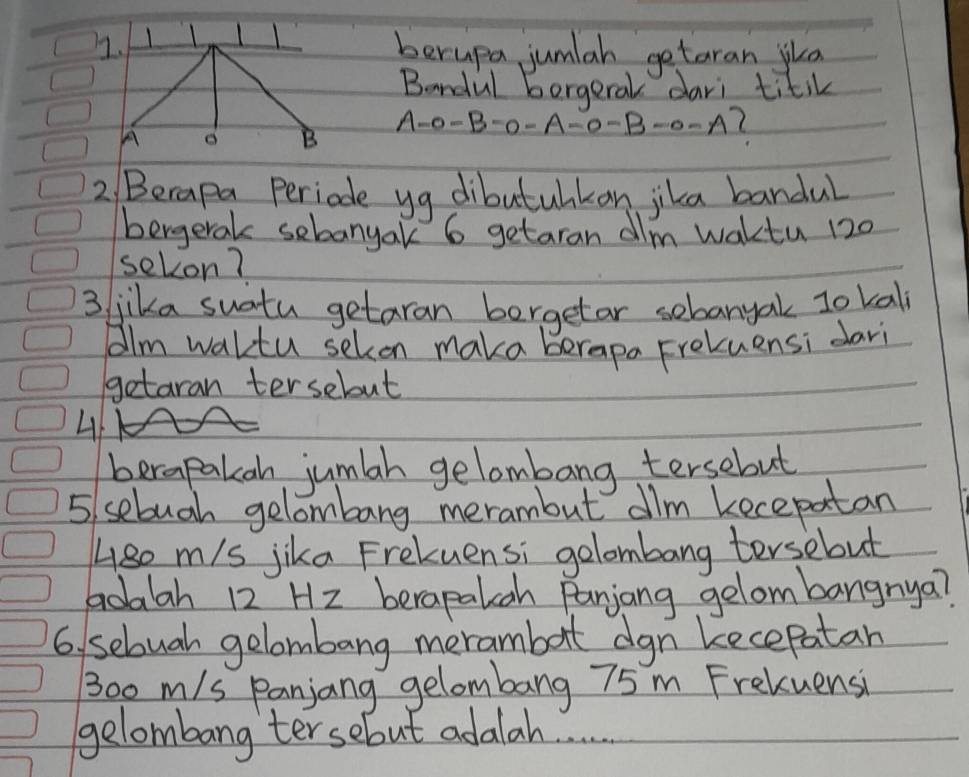 1. berupa jumlah getaran jika
Bandul bergerak dari titik
A-o-B-o-A-o-B-o-A?
A o B
2. Berapa Periode yg dibutuhkan jika bandul
bergerak sebanyak 6 getaran dlm waktu 120
sekon?
3. jika suatu getaran bergetar sebanyak 10 kali
dlm waktu sekon maka berapa Frekuensi dari
getaran tersebut
4.
berapakah jumlah gelombang tersebut
5. sebuah gelombang merambut dlm kecepatan
480 m/s jika Frekuensi gelombang tersebut
adalah 12 Hz berapakah Panjang gelombangnya?
6. sebuah gelombang merambat dgn kecepatan
300 m/s panjang gelombang 75 m Frekuensi
gelombang tersebut adalah......